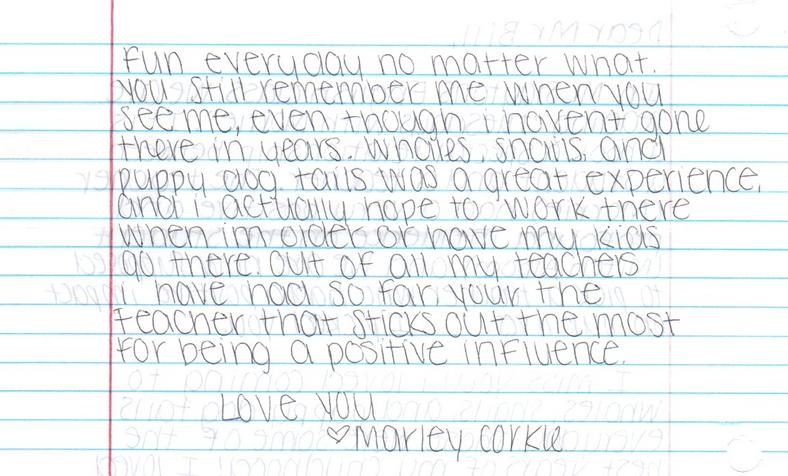 fun everyday no matter what.
you still remember me when you
see me, even though i havent gone
there in years. Whales, snails, and
puppy dog tails was a great experience,
and i actually hope to work there
when im older or have my kids
go there. out of all my teachers
i have had so far, your the
teacher that sticks out the most
for being a positive influence.
Love you
♡ Marley Corkle